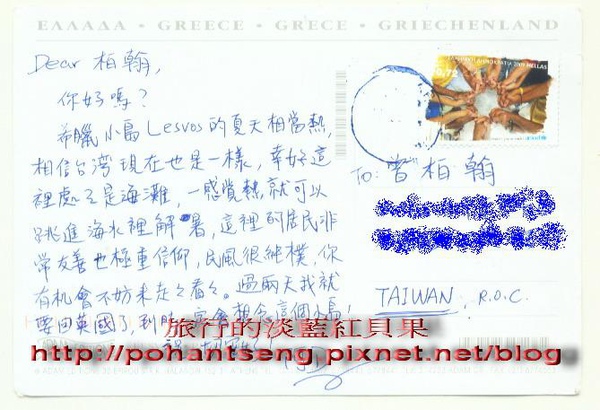 ΕΛΛΑΔΑ • GREECE • GRECE • GRIECHENLAND
Dear 柏翰,
你好嗎?
希臘小島Lesvos的夏天相當熱,
相信台湾現在也是一樣,幸好這
裡處々是海灘,一感覺熱就可以
跳進海水裡解暑,這裡的居民非
常友善也極重信仰,民風很純樸,你
有机會不妨來走々看々。過兩天我就
要回英國了,到時一定會想念這個小島!
HELLAS
To: 曾柏翰
TAIWAN, R.O.C.
旅行的淡藍紅貝果
http://pohantseng.pixnet.net/blog